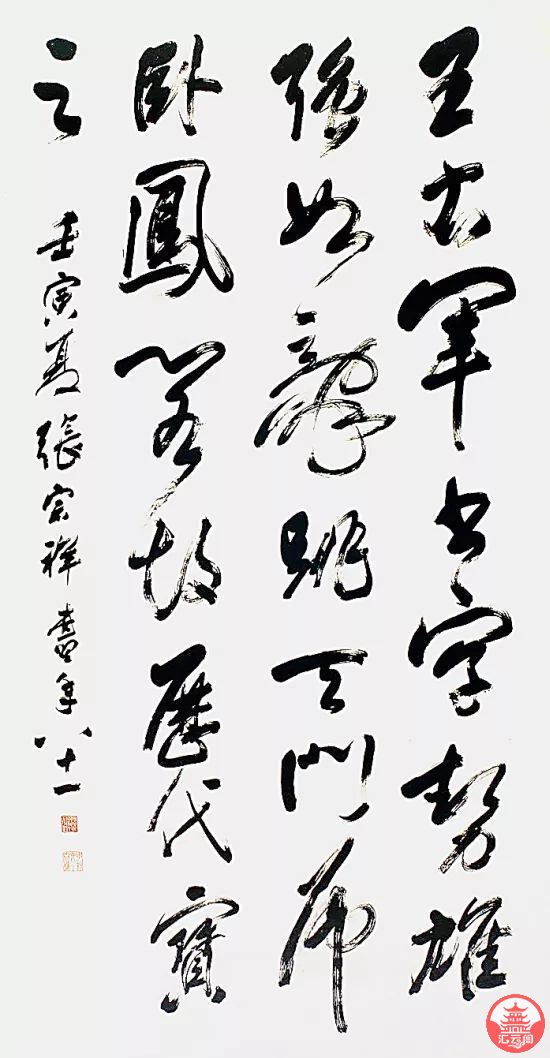 王右軍書字勢雄
強如龍跳天門虎
臥鳳閣故歷代寶
之
壬寅夏張宗祥年八十一
汇云阁